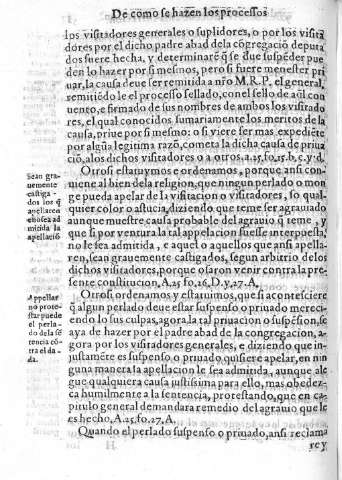 De como se hazen los processos
los visitadores generales o suplidores, o por los visita
dores por el dicho padre abad dela cõgregaciõ deputa
dos fuere hecha, y determinarẽ q̃ se due suspẽder pue
den lo hazer por si mesmos, pero si fuere menester pri
uar, la causa deue ser remitida a nr̃o M.R.P. el general,
remitiẽdo le el processo sellado, con el sello de aq̃l con
uento, e firmado de sus nombres de ambos los visitado
res, el qual conocidos sumariamente los meritos de la
causa, priue por si mesmo: o si viere ser mas expediẽte
por algũa legitima razõ, cometa la dicha causa de priua
ciõ, alos dichos visitadores o a otros. a.25, fo, 25. b, c, y. d.
Otrosi estatuymos e ordenamos, porque ansi con-
uiene al bien dela religion, que ningun perlado o mon
ge pueda apelar de la visitacion o visitadores, so qual-
quier color o astucia, diziendo que teme ser agrauiado
aunque muestre causa probable del agrauio q̃ teme, y
que si por ventura la tal appelacion fuesse interpuesta,
no le sea admitida, e aquel o aquellos que ansi apella-
ren, sean grauemente castigados, segun arbitrio delos
dichos visitadores, porque osaron venir contra la pre-
sente constitucion, A, 25 fo, 26, D. y. 27. A.
Sean gra-
uemente
castiga-
dos los q̃
apellaren
e no sea ad
mitida la
apellaciõ
Otrosi ordenamos y estatuimos, que si aconteciere
q̃ algun perlado deue estar suspenso o priuado mereci-
endo lo sus culpas, agora la tal priuacion o suspẽsion, se
aya de hazer por el padre abad de la congregacion, a-
gora por los visitadores generales, e diziendo que in-
justamẽte es suspenso o priuado, quisiere apelar, en nin
guna manera la apellacion le sea admitida, aunque ale
gue qualquiera causa justissima para ello, mas obedez-
ca humilmente a la sentencia, protestando, que en ca-
pitulo general demandara remedio del agrauio que le
es hecho, A. 25, fo. 27. A.
Appellar
no prote-
star puede
el perla-
do de la sẽ
tencia cõ-
tra el da-
da.
Quando el perlado suspenso o priuado, ansi reclama
H
rey